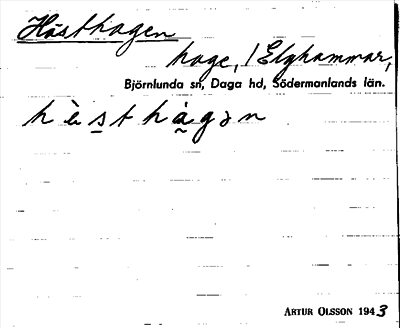 Hästhagen
hage, / Elghammar,
Björnlunda sn, Daga hd, Södermanlands län.
hèsthàgən
ARTUR OLSSON 1943